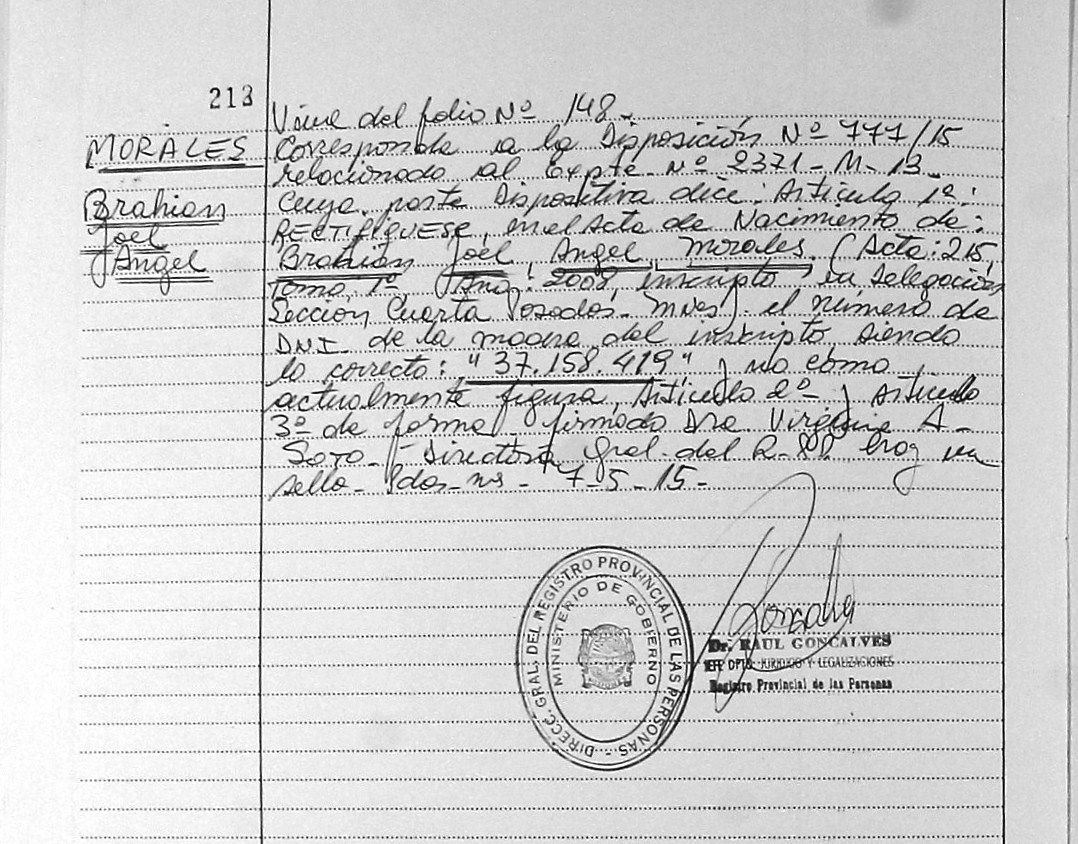 213
MORALES
Brahian
Joel
Angel
Viene del folio Nº 148.
Corresponde a la Disposición Nº 777/15
relacionado al Expte. Nº 2371-M-13.
Cuya parte Dispositiva dice: Artículo 1º:
RECTIFIQUESE, en el Acta de Nacimiento de:
Brahian Joel Angel Morales. (Acta: 215,
Tomo 1º Año: 2008, inscripto, en Delegación
Seccion Cuarta Posadas. Mnes). el número de
DNI de la madre del inscripto, siendo
lo correcto: "37.158.419" y no como
actualmente figura, Artículo 2º y Artículo
3º de forma firmado Dra Virginia A.
Soto - Directora Gral. del R.PP. hay un
sello - Pdas-ms - 7-5-15-
DIRECC. GRAL. DEL REGISTRO PROVINCIAL DE LAS PERSONAS
MINISTERIO DE GOBIERNO
Dr. RAUL GONCALVES
JEFE DPTO. JURIDICO Y LEGALIZACIONES
Registro Provincial de las Personas